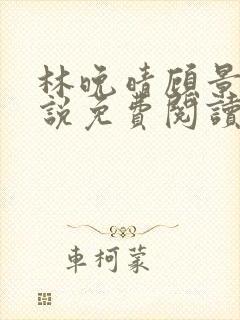 林晚晴顾景
說免費閱讀
車柯蒙